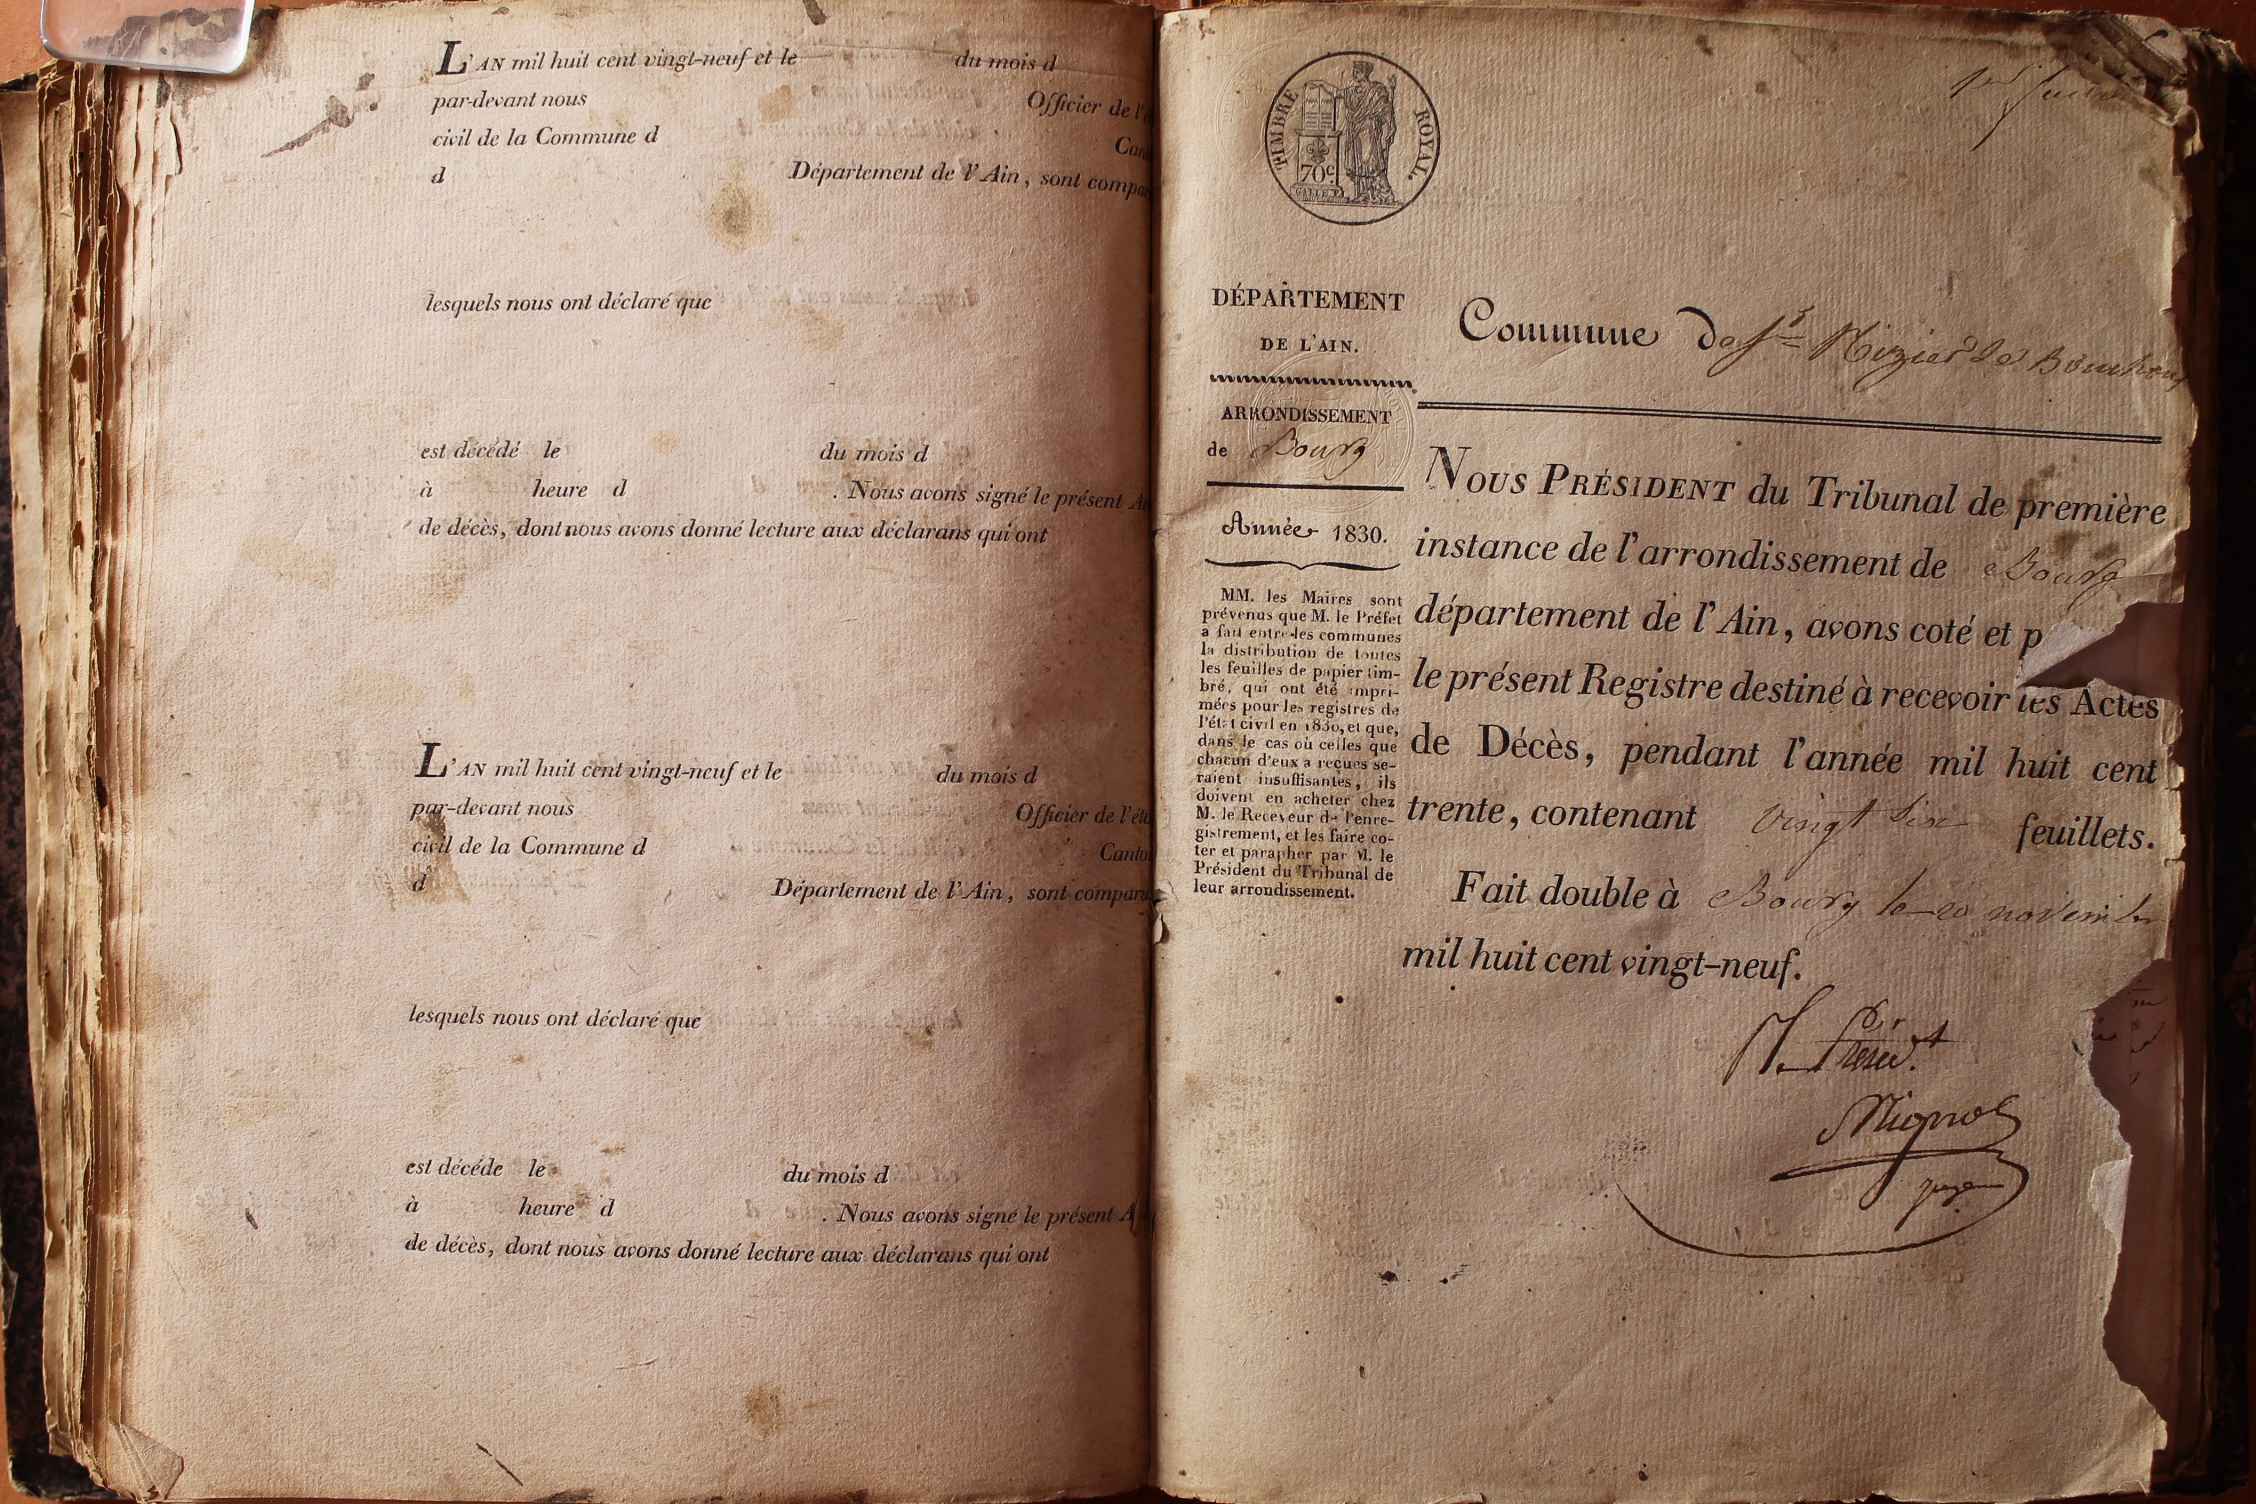 L'AN mil huit cent vingt-neuf et le du mois d
par-devant nous Officier de l'é
civil de la Commune d Can
d Département de l'Ain, sont compar
lesquels nous ont déclaré que
est décédé le du mois d
à heure d . Nous avons signé le présent A
de décès, dont nous avons donné lecture aux déclarans qui ont
L'AN mil huit cent vingt-neuf et le du mois d
par-devant nous Officier de l'éta
civil de la Commune d Canto
d Département de l'Ain, sont compar
lesquels nous ont déclaré que
est décéde le du mois d
à heure d . Nous avons signé le présent A
de décès, dont nous avons donné lecture aux déclarans qui ont
TIMBRE ROYAL.
70c.
DÉPARTEMENT
DE L'AIN.
ARRONDISSEMENT
de Bourg
Année 1830.
MM. les Maires sont
prévenus que M. le Préfet
a fait entre les communes
la distribution de toutes
les feuilles de papier tim-
bré, qui ont été impri-
mées pour les registres de
l'état civil en 1830, et que,
dans le cas où celles que
chacun d'eux a reçues se-
raient insuffisantes, ils
doivent en acheter chez
M. le Receveur de l'enre-
gistrement, et les faire co-
ter et parapher par M. le
Président du Tribunal de
leur arrondissement.
Commune De St Nizier le Bouchoux
NOUS PRÉSIDENT du Tribunal de première
instance de l'arrondissement de Bourg
département de l'Ain, avons coté et p
le présent Registre destiné à recevoir les Actes
de Décès, pendant l'année mil huit cent
trente, contenant vingt six feuillets.
Fait double à Bourg le 20 novembre
mil huit cent vingt-neuf.